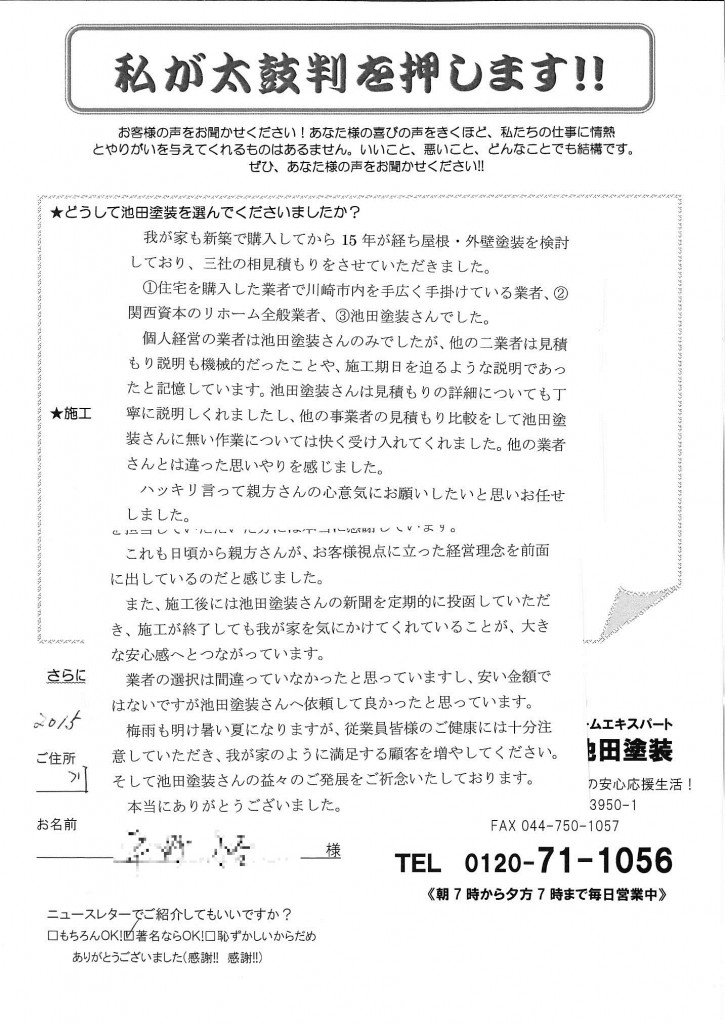 私が太鼓判を押します!!
お客様の声をお聞かせください！あなた様の喜びの声をきくほど、私たちの仕事に情熱
とやりがいを与えてくれるものはあるません。いいこと、悪いこと、どんなことでも結構です。
ぜひ、あなた様の声をお聞かせください!!
★どうして池田塗装を選んでくださいましたか？
我が家も新築で購入してから 15 年が経ち屋根・外壁塗装を検討
しており、三社の相見積もりをさせていただきました。
①住宅を購入した業者で川崎市内を手広く手掛けている業者、②
関西資本のリホーム全般業者、③池田塗装さんでした。
個人経営の業者は池田塗装さんのみでしたが、他の二業者は見積
もり説明も機械的だったことや、施工期日を迫るような説明であっ
たと記憶しています。池田塗装さんは見積もりの詳細についても丁
★施工
寧に説明しくれましたし、他の事業者の見積もり比較をして池田塗
装さんに無い作業については快く受け入れてくれました。他の業者
さんとは違った思いやりを感じました。
ハッキリ言って親方さんの心意気にお願いしたいと思いお任せ
しました。
これも日頃から親方さんが、お客様視点に立った経営理念を前面
に出しているのだと感じました。
また、施工後には池田塗装さんの新聞を定期的に投函していただ
き、施工が終了しても我が家を気にかけてくれていることが、大き
な安心感へとつながっています。
さらに
業者の選択は間違っていなかったと思っていますし、安い金額で
はないですが池田塗装さんへ依頼して良かったと思っています。
2015
梅雨も明け暑い夏になりますが、従業員皆様のご健康には十分注
意していただき、我が家のように満足する顧客を増やしてください。
そして池田塗装さんの益々のご発展をご祈念いたしております。
本当にありがとうございました。
ームエキスパート
池田塗装
の安心応援生活！
3950-1
ご住所
お名前
様
FAX 044-750-1057
TEL 0120-71-1056
《朝7時から夕方7時まで毎日営業中》
ニュースレターでご紹介してもいいですか？
□もちろんOK!☑著名ならOK!□恥ずかしいからだめ
ありがとうございました(感謝!! 感謝!!)